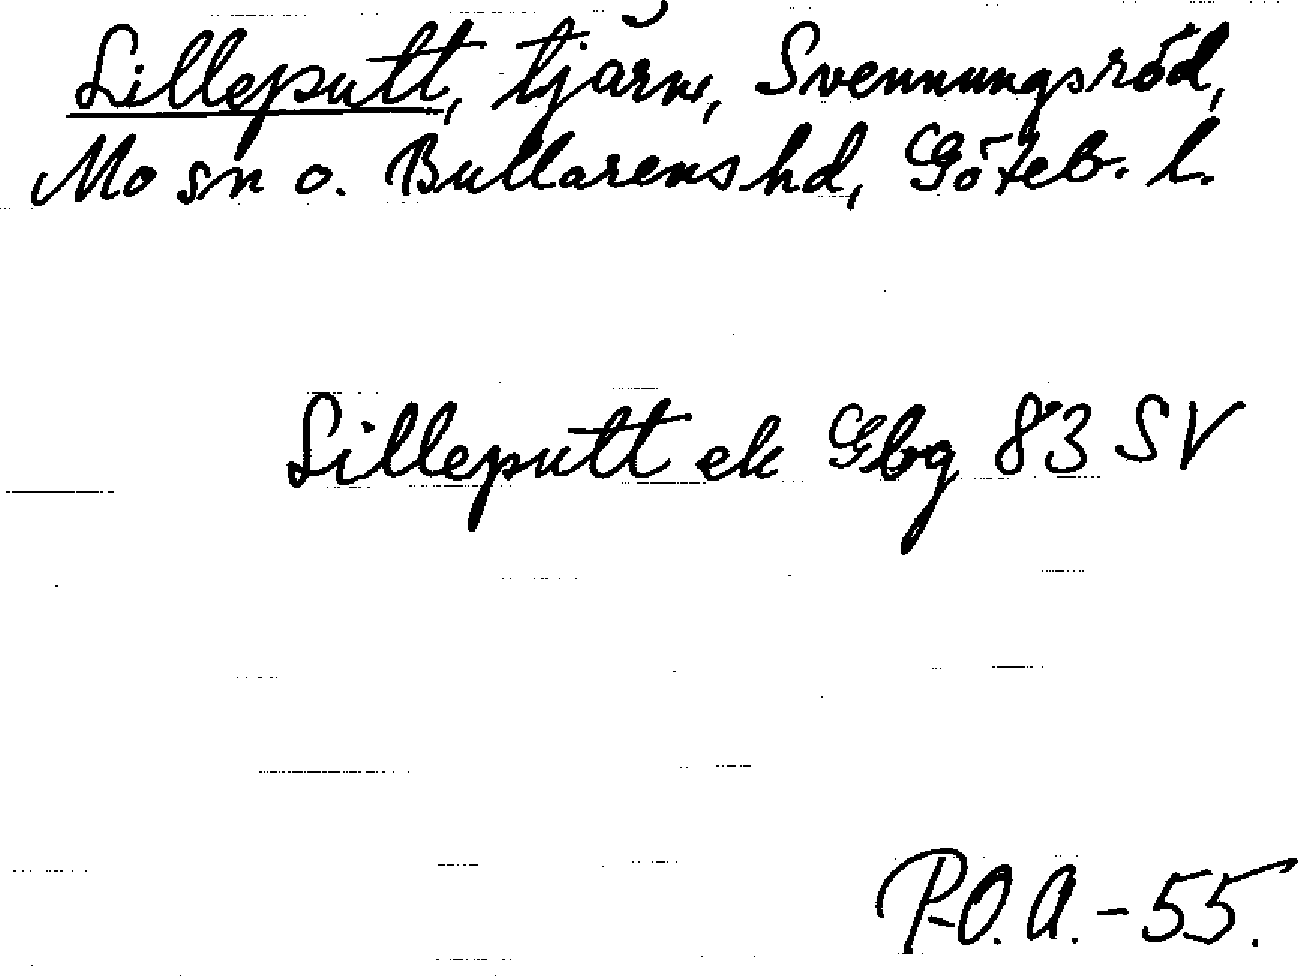 Lilleputt, tjärn, Svennungsröd,
Mo sn o. Bullarens hd, Göteb. l.
Lilleputt ek Gbg 83 SV
P.O.A. - 55.